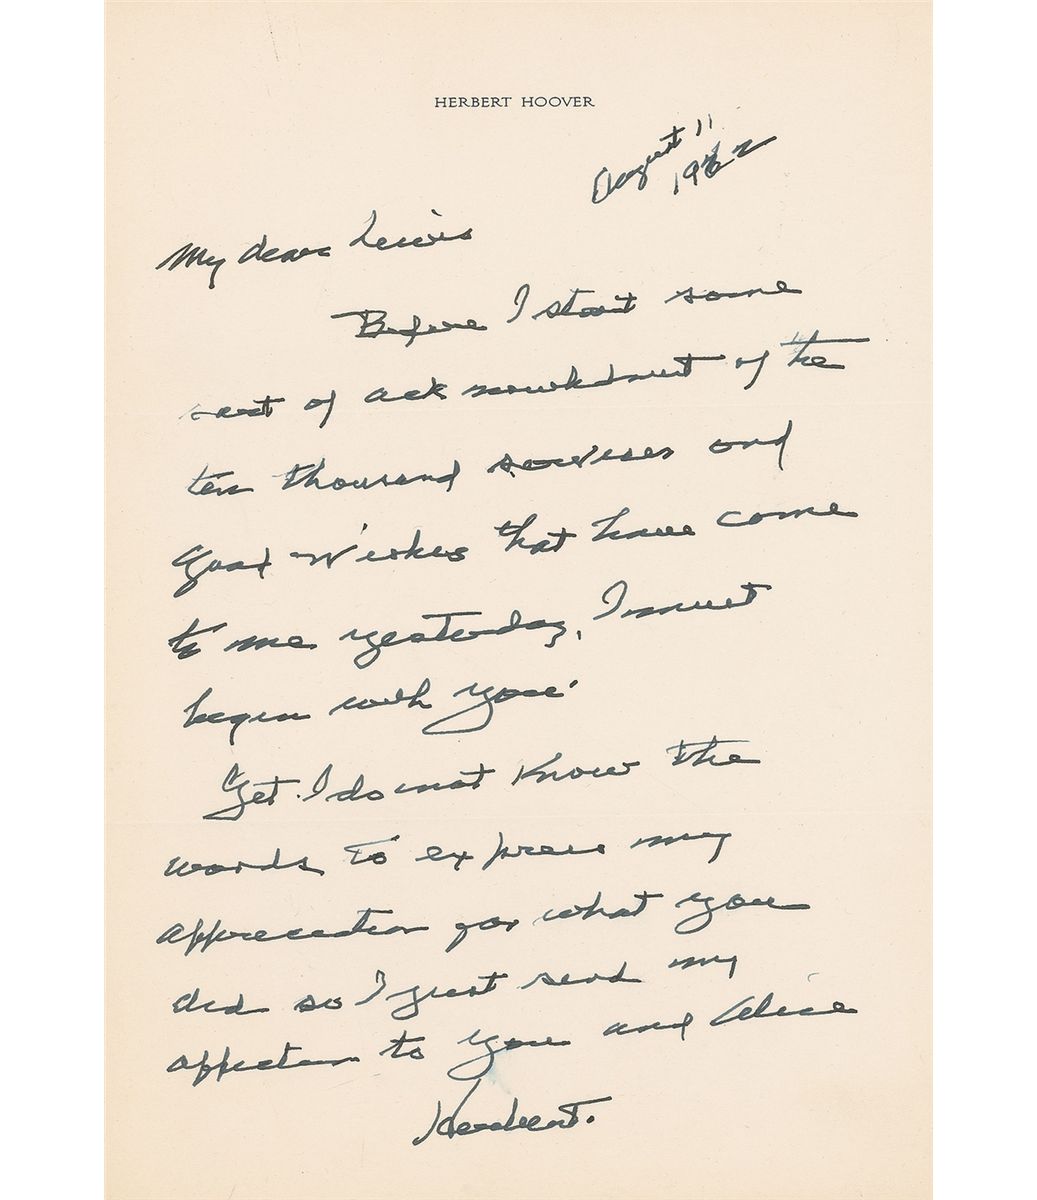 HERBERT HOOVER
August 11
1962
My dear Lewis
Before I start some
sort of acknowledment of the
ten thousand services and
good wishes that have come
to me yesterday, I must
begin with you.
Yet I do not know the
words to express my
appreceation for what you
did so I just send my
affection to you and Alice
Herbert.